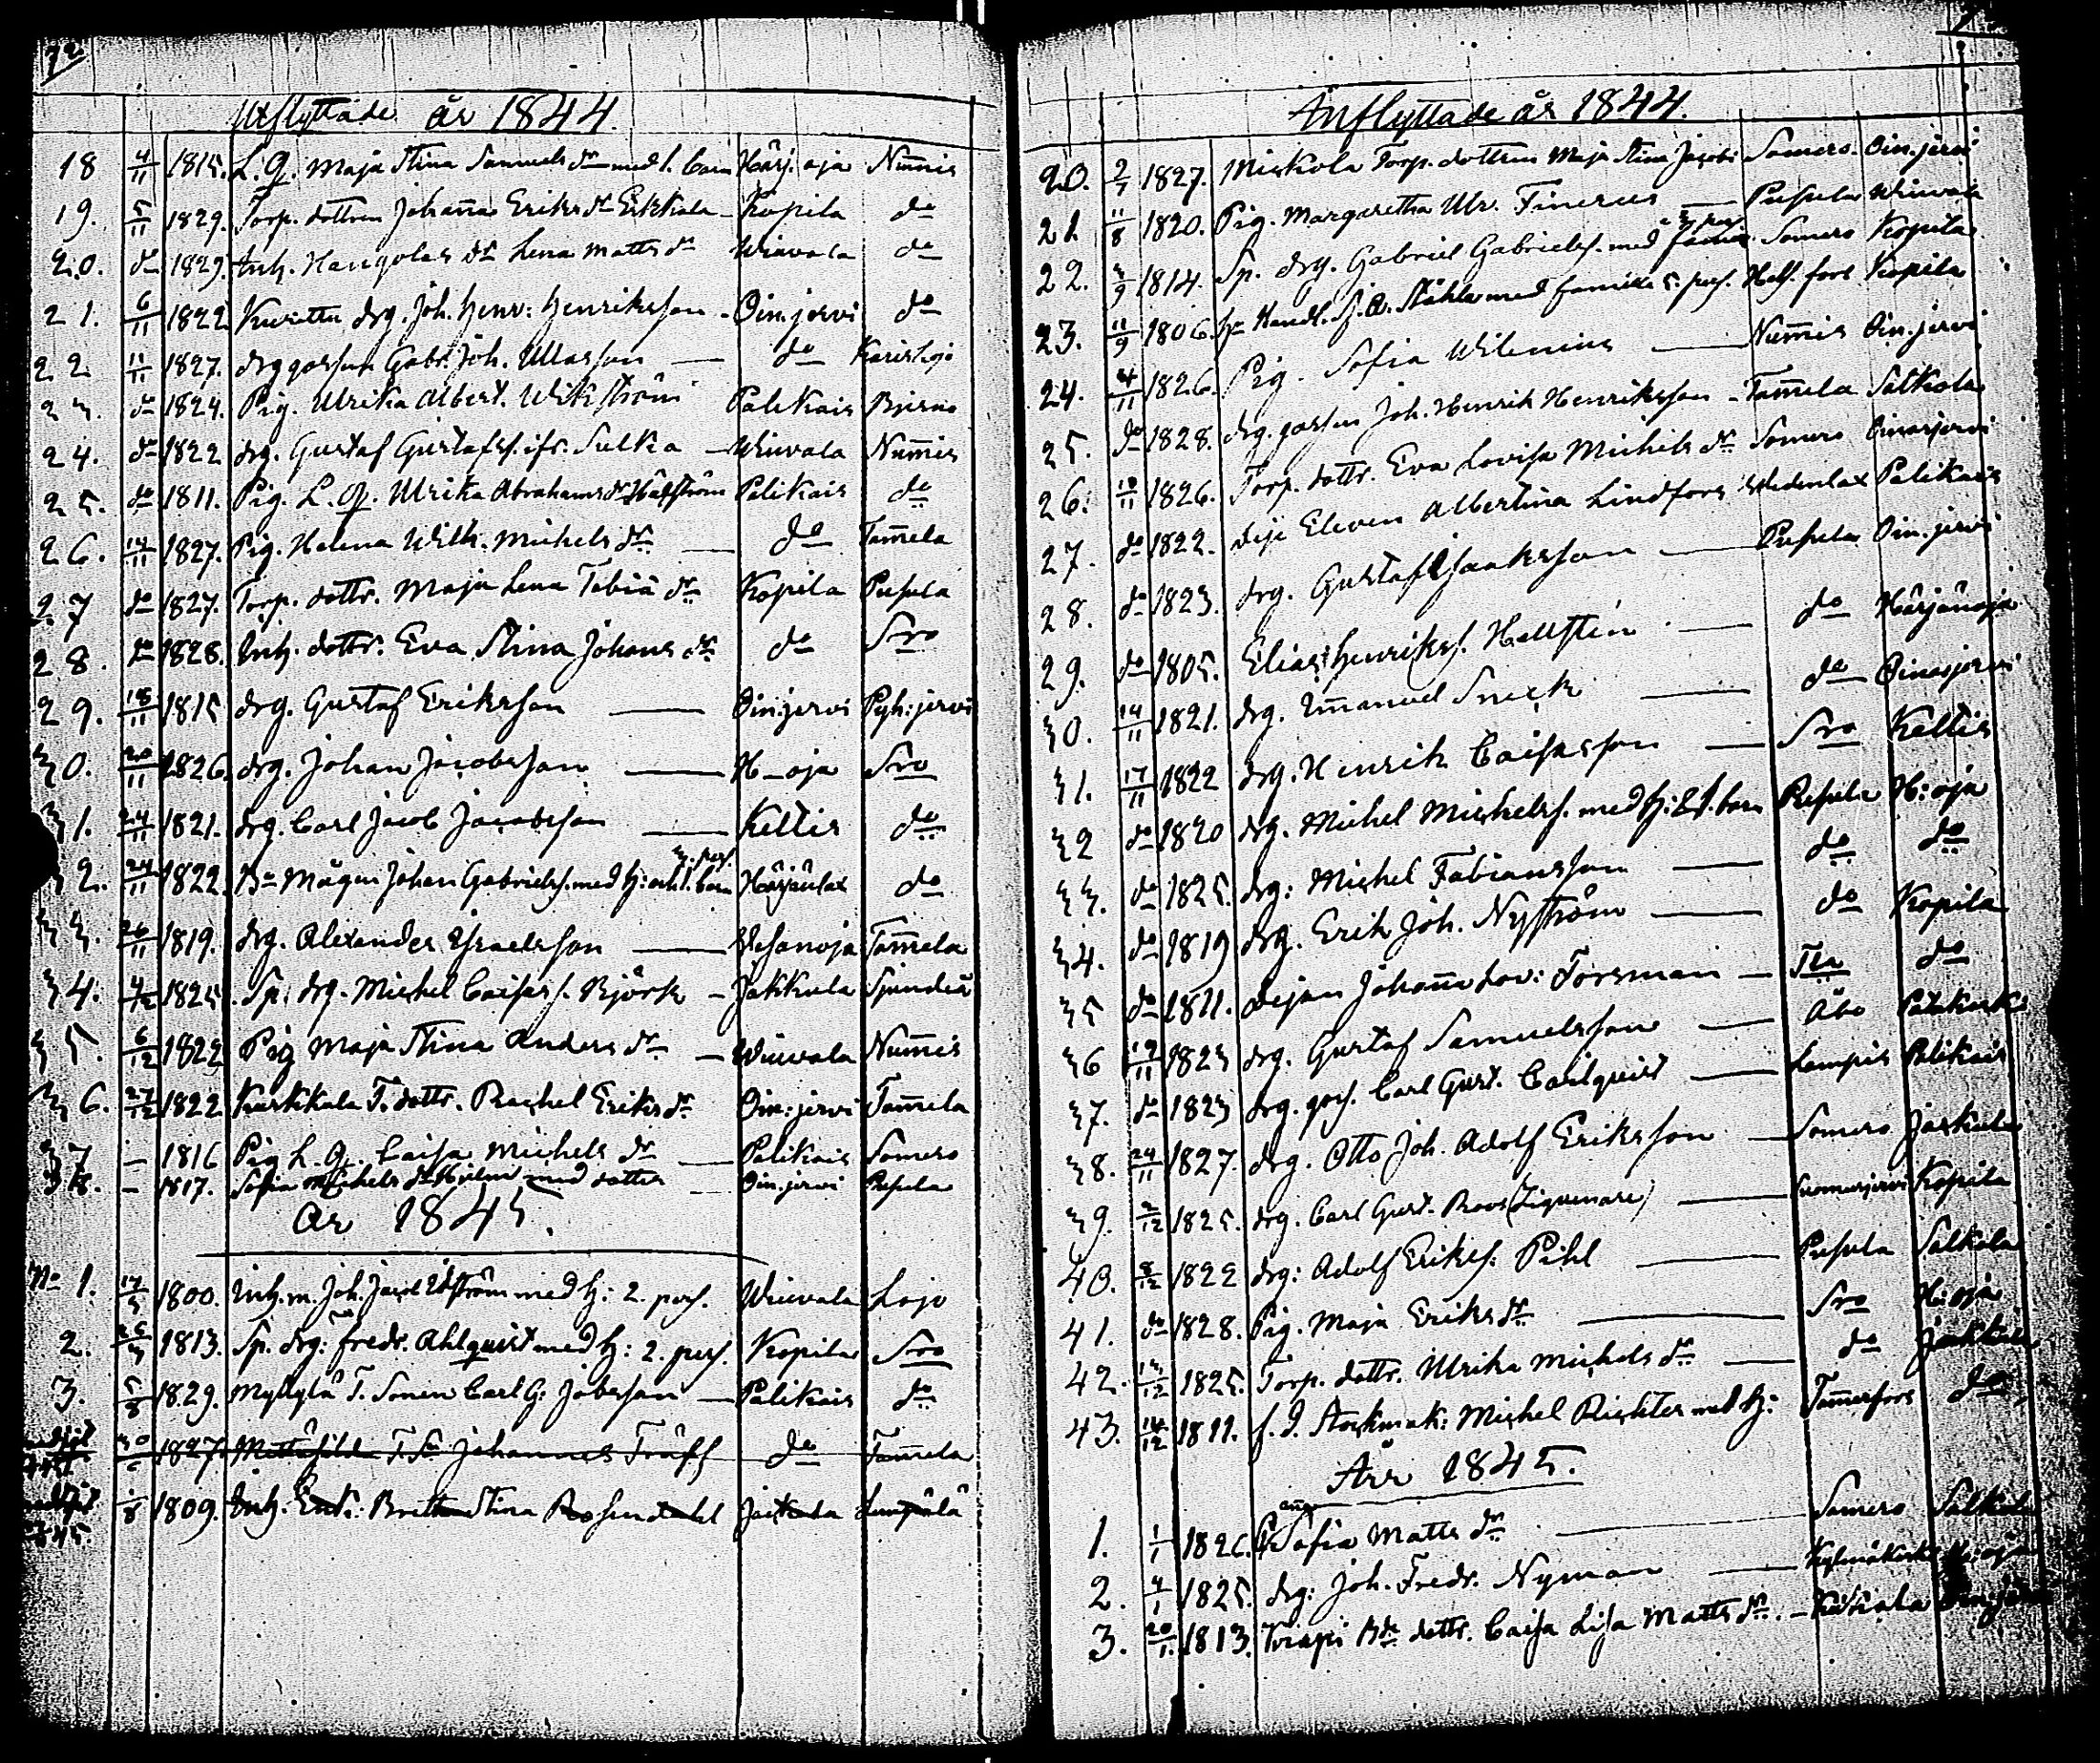 72
Utflyttade år 1844.
18 4/11 1815. L. Q. Maja Stina Samuels dr med 1. barn Härj. oja Nummis
19. 5/11 1829. Torp. dottren Johanna Eriks dr Erkkala Kopila do
20. do 1829. Inh. Hangolas dr Lena Matts dr Wiuvala do
21. 6/11 1822 drg. Joh. Henr: Henriksson Oin. jervi do
22 11/11 1827. drg gossen Gabr. Joh. Ullasson do Karislojo
23. do 1824. Pig. Ulrika Albert. Wikström Palikais Bjerno
24. do 1822 drg. Gustaf Gustafss. ifr. Sulka Wiuvala Nummis
25. do 1811. Pig. L. Q. Ulrika Abrahams dr Hälström Palikais do
26. 14/11 1827. Pig. Helena Wilh. Michels dr do Tammela
27 do 1827. Torp. dottr. Maja Lena Tobiä dr Kopila Pusula
28. do 1828. Inh. dottr. Eva Stina Johans dr do Sro
29. 18/11 1815 drg. Gustaf Eriksson Oin:jervi Pyh:jervi
30. 20/11 1826. drg. Johan Jacobsson H-oja Sro
31. 24/11 1821. drg. Carl Jacob Jacobsson Keltis do
32. 24/11 1822. Bde Mågen Johan Gabrielss. med h: och 1. barn 3. pers. Härjänlax do
33. 26/11 1819. drg. Alexander Israelsson Wesanoja Tammela
34. 4/12 1825 Sp: drg. Michel Caisass. Björk Jakkula Sjundeå
35. 6/12 1822 Pig Maja Stina Anders dr Wiuvala Nummis
36. 27/12 1822 Kurkkala T. dottr. Rachel Eriks dr Oin:jervi Tammela
37 – 1816 Pig L. Q. Caisa Michels dr Palikais Somero
38. – 1817. Sofia Michels dr Hjelm med dotter Oin.jervi Pusula
År 1845.
No 1. 17/3 1800. Inh. m. Joh. Jacob Edström med h: 2. pers. Wiuvala Lojo
2. 1813. Sp. drg: Fredr. Ahlquist med h: 2. pers. Kopila Sro
3. 1829. Myllylä T. Sonen Carl G: Jobsson Palikais do
1827. T. Sn Johannes Träff do Tammela
1845. 1809. Inh: Enk: Britta Stina Rosendahl Jackula Lempälä
Inflyttade år 1844.
20. 2/7 1827. Mickola Torp. dottren Maja Stina Jacobs Somero Oin.jervi
21 11/8 1820. Pig. Margaretha Ulr. Finerus Pusula Wiuvala
22. 3/9 1814. Sp. drg. Gabriel Gabrielss. med famil. 3 pers. Somero Kopila
23. 11/9 1806. Hr Handl. Ståhle med familie 5. pers. Hels. fors Kopila
24. 4/11 1826. Pig. Sofia Wilenius Nummis Oin.jervi
25. do 1828. drg. gossen Joh. Henrik Henriksson Tammela Salkola
26. 10/11 1826. Torp. dottr. Eva Lovisa Michels dr Somero Oinasjervi
27. do 1822. Deje Eleven Albertina Lindfors Wederlax Palikais
28. do 1823. drg. Gustaf Isaaksson Pusula Oin.jervi
29. do 1805. Elias Henrikss. Hellsten do Härjänoja
30. 14/11 1821. drg. Emanuel Sneck do Oinasjervi
31. 17/11 1822 drg. Henrik Caisasson Sro Keltis
32 do 1820 drg. Michel Michelss. med h: & 1. barn Pusula H:oja
33. do 1825. drg: Michel Fabiansson do do
34. do 1819 drg. Erik Joh. Nyström do Kopila
35 do 1811. Dejan Johanna Lov: Forsman Tla do
36 19/11 1823 drg. Gustaf Samuelsson Åbo Palikais
37. do 1823 drg. goss. Carl Gust. Carlquist Lampis Palikais
38. 24/11 1827. drg. Otto Joh. Adolf Eriksson Somero Jackula
39. 2/12 1825. drg. Carl Gust. Roos (Ziguenare) Kopila
40. 8/12 1822 drg: Adolf Erikss. Pihl Pusula Salkola
41. do 1828. Pig. Maja Eriks dr Sro H:oja
42. 13/12 1825. Torp. dottr. Ulrika Michels dr do Jakkula
43. 14/12 1811. f. d. Stockmak: Michel Richter med h: Tammerfors do
År 1845.
1. 1/1 1826. Sofia Matts dr Somero Salkola
2. 4/1 1825. drg: Joh. Fredr. Nyman Kylmäkoski H:oja
3. 20/1 1813. Torapi Bde dottr. Caisa Lisa Matts dr